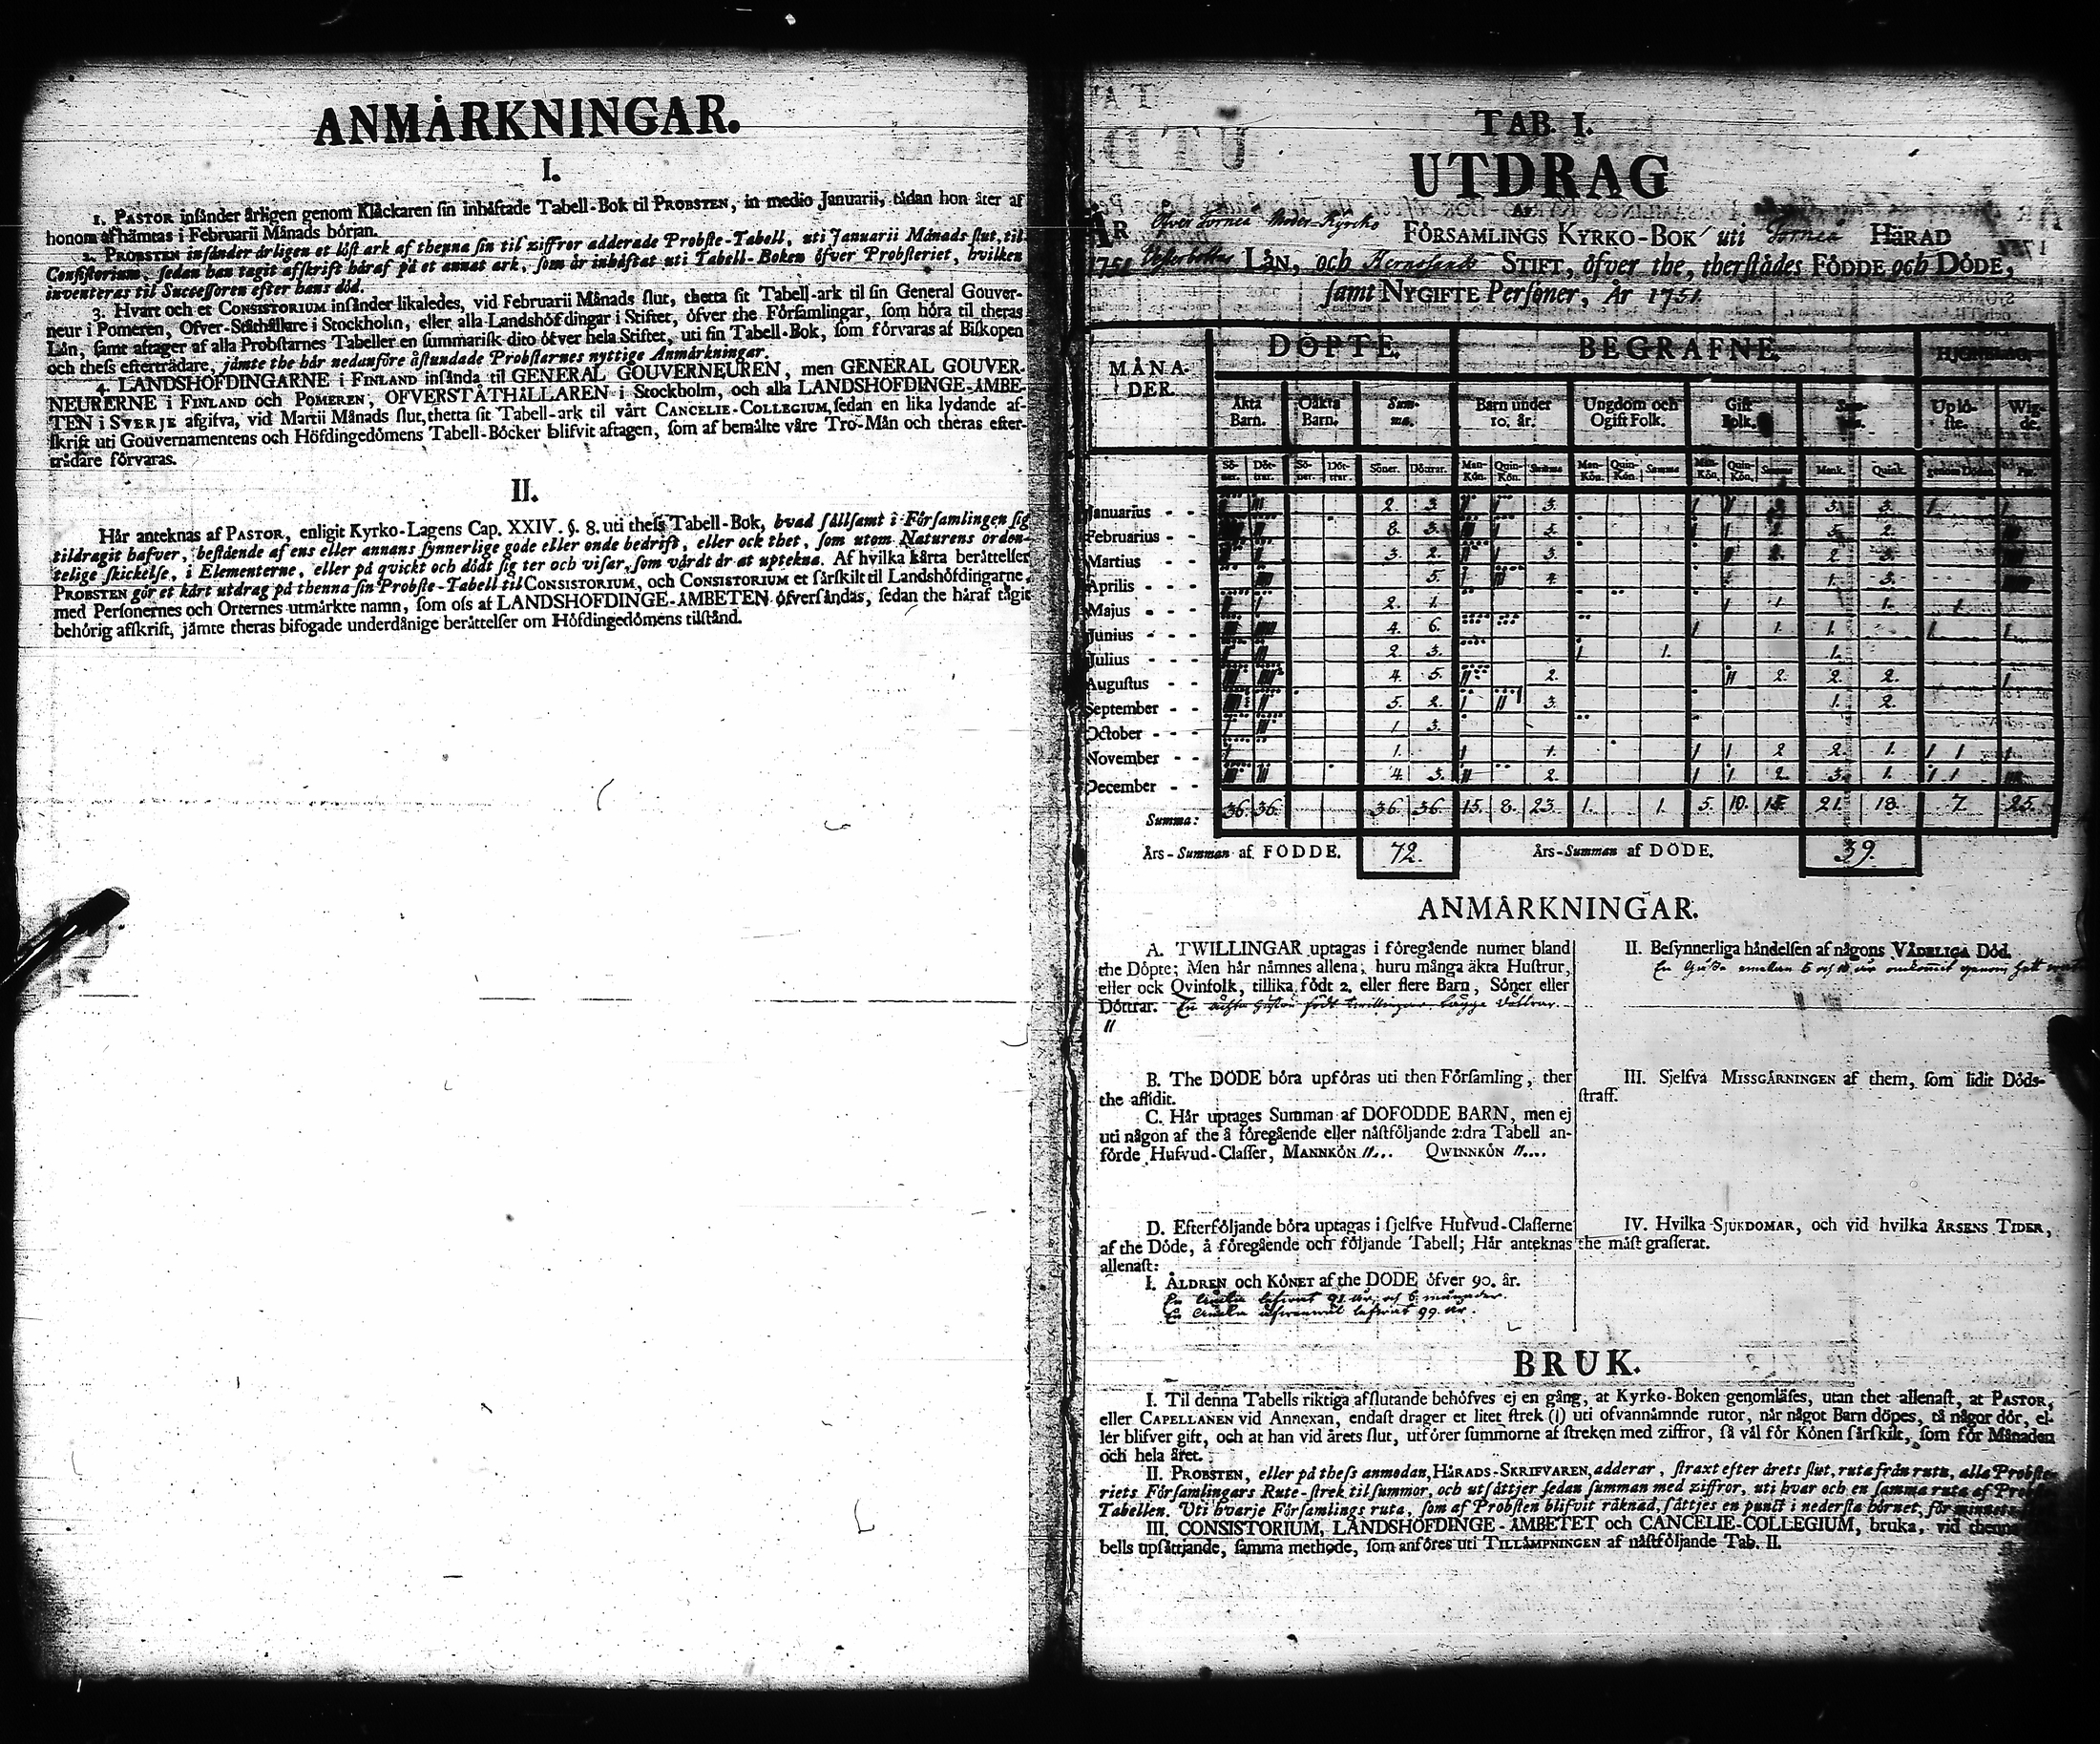 ANMÅRKNINGAR.
I.
1. PASTOR insånder årligen genom Klåckaren sin inhåftade Tabell-Bok til PROBSTEN, in medio Januarii, tådan hon åter af
honom afhåmtas i Februarii Månads början.
2. PROBSTEN insånder årligen et löst ark af thenna sin til ziffror adderade Probste-Tabell, uti Januarii Månads slut, til
Consistorium, sedan han tagit afskrift håraf på et annat ark, som år inhåftat uti Tabell-Boken öfver Probsteriet, hvilken
inventeras til Successoren efter hans död.
3. Hvart och et CONSISTORIUM insånder likaledes, vid Februarii Månads slut, thetta sit Tabell-ark til sin General Gouver-
neur i Pomeren, Öfver-Ståthållare i Stockholm, eller alla Landshöfdingar i Stiftet, öfver the Församlingar, som höra til theras
Lån, samt aftager af alla Probstarnes Tabeller en summarisk dito öfver hela Stiftet, uti sin Tabell-Bok, som förvaras af Biskopen
och thess efterträdare, jämte the hår nedanföre åstundade Probstarnes nyttige Anmårkningar.
4. LANDSHÖFDINGARNE i FINLAND insånda til GENERAL GOUVERNEUREN, men GENERAL GOUVER-
NEURERNE i FINLAND och POMEREN, ÖFVERSTÅTHÅLLAREN i Stockholm, och alla LANDSHÖFDINGE-ÅMBE-
TEN i SVERJE afgifva, vid Martii Månads slut, thetta sit Tabell-ark til vårt CANCELIE-COLLEGIUM, sedan en lika lydande af-
skrift uti Gouvernamentens och Höfdingedömens Tabell-Böcker blifvit aftagen, som af bemålte våre Tro-Mån och theras efter-
trådare förvaras.
II.
Hår anteknas af PASTOR, enligit Kyrko-Lagens Cap. XXIV. §. 8. uti thess Tabell-Bok, hvad sållsamt i Församlingen sig
tildragit hafver, bestående af ens eller annans synnerlige gode eller onde bedrift, eller ock thet, som utom Naturens orden-
telige skickelse, i Elementerne, eller på qvickt och dödt sig ter och visar, som vårdt år at uptekna. Af hvilka kårta beråttelser
PROBSTEN gör et kårt utdrag på thenna sin Probste-Tabell til CONSISTORIUM, och CONSISTORIUM et sårskilt til Landshöfdingarne,
med Personernes och Orternes utmårkte namn, som oss af LANDSHÖFDINGE-ÅMBETEN öfversåndas, sedan the håraf tagit
behörig afskrift, jämte theras bifogade underdånige beråttelser om Höfdingedömens tilstånd.
TAB. I.
UTDRAG
AF
ÅR Öfver Torneå Moder-Kyrcko FÖRSAMLINGS KYRKO-BOK uti Torneå HÄRAD
1751 Vesterbottns LÅN, och Hernösands STIFT, öfver the, therstådes FÖDDE och DÖDE,
samt NYGIFTE Personer, År 1751.
MÅNA-DER. DÖPTE. BEGRAFNE.
Äkta Barn. Oäkta Barn. Summa. Barn under 10. år. Ungdom och Ogift Folk. Gift Folk. Summa. Uplö-ste. Wig-de.
Sö-ner. Döt-trar. Sö-ner. Döt-trar. Söner. Döttrar. Man-Kön. Quin-Kön. Summa Man-Kön. Quin-Kön. Summa Man-Kön. Quin-Kön. Summa Mank. Quink. genom Döden. Par.
Januarius - - 2. 3. 3. 3. 3.
Februarius - - 8. 3. 5. 2.
Martius - - 3. 2. 3. 2. 2. 3.
Aprilis - - 5. 4. 1. 3.
Majus - - 2. 1. 1. 1.
Junius - - 4. 6. 1. 1.
Julius - - 2. 3. 1. 1.
Augustus - - 4. 5. 2. 2. 2. 2.
September - - 5. 2. 3. 1. 2.
October - - 1 3.
November - - 1. 1. 2 2. 1.
December - - 4 3. 2. 2. 3. 1.
Summa: 36. 36. 36. 36. 15. 8. 23. 1. 1. 5. 10. 15. 21. 18. 7. 25.
Års-Summan af FÖDDE. 72. Års-Summan af DÖDE. 39.
ANMÅRKNINGAR.
A. TWILLINGAR uptagas i föregående numer bland
the Döpte; Men hår nåmnes allena, huru många äkta Hustrur,
eller ock Qvinfolk, tillika födt 2. eller flere Barn, Söner eller
Döttrar. En ächta hustru födt twillingar bägge döttrar.
//
B. The DÖDE böra upföras uti then Församling, ther
the aflidit.
C. Hår uptages Summan af DÖFÖDDE BARN, men ej
uti någon af the å föregående eller nåstföljande 2:dra Tabell an-
förde Hufvud-Classer, MANNKÖN //... QWINNKÖN //....
D. Efterföljande böra uptagas i sjelfve Hufvud-Classerne
af the Döde, å föregående och följande Tabell; Hår anteknas
allenast:
I. ÅLDREN och KÖNET af the DÖDE öfver 90. år.
En lefwat 91. år, och 6 månader.
En lefwat 99. år.
II. Besynnerliga håndelsen af någons VÅDELIGA Död.
En emellan 5 och 6 år omkommit genom hett
III. Sjelfva MISSGÅRNINGEN af them, som lidit Döds-
straff.
IV. Hvilka SJUKDOMAR, och vid hvilka ÅRSENS TIDER,
the måst grasserat.
BRUK.
I. Til denna Tabells riktiga afslutande behöfves ej en gång, at Kyrko-Boken genomläses, utan thet allenast, at PASTOR,
eller CAPELLANEN vid Annexan, endast drager et litet strek (|) uti ofvannåmnde rutor, når något Barn döpes, tå någor dör, el-
ler blifver gift, och at han vid årets slut, utförer summorne af streken med ziffror, så vål för Könen sårskilt, som för Månaden
och hela året.
II. PROBSTEN, eller på thess anmodan, HÅRADS-SKRIFVAREN, adderar, straxt efter årets slut, ruta från ruta, alla Probste-
riets Församlingars Rute-strek til summor, och utsåttjer sedan summan med ziffror, uti hvar och en samma ruta af
Tabellen. Uti hvarje Församlings ruta, som af Probsten blifvit råknad, såttjes en punct i nedersta hörnet, för
III. CONSISTORIUM, LANDSHÖFDINGE-ÅMBETET och CANCELIE COLLEGIUM, bruka, vid thenna
bells upsåttjande, samma methode, som anföres uti TILLÅMPNINGEN af nåstföljande Tab. II.